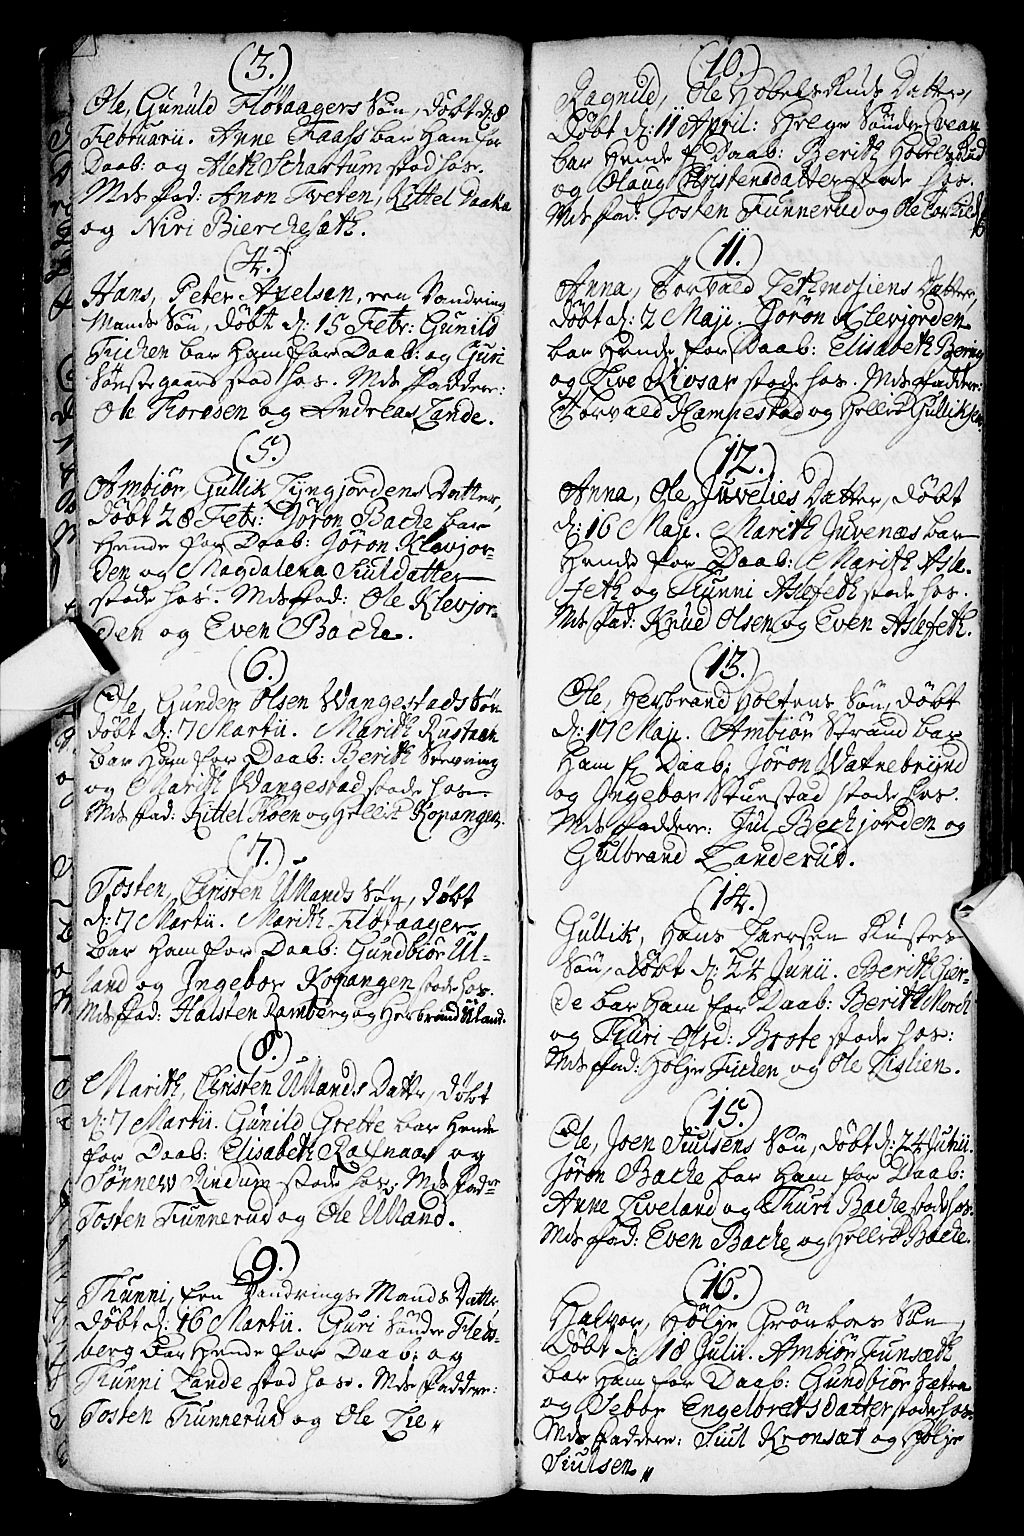 (3.)
Ole, Gunuld Fløtaagers Søn, døbt d: 8
Februarii. Anne Faass bar Ham for
Daab: og Aleth Schartum stod hos.
Mds fad: Anon Tveten, Kittel Daaka
og Niri Bierchesæth.
(4.)
Hans, Peter Axelsen, en Vandrings
Mands Søn, døbt d: 15 Febr: Gunild
Fichen bar Ham for Daab: og Guri
stod hos. Mds Faddere:
Ole Thorøsen og Andreas Lande.
(5.)
Ambiør, Gullik Lyngjordens Datter,
døbt 28 Febr: Jøron Bache bar
Hende for Daab: Jøron Klevjor-
den og Magdalena Juuldatter
stode hos. Mds fad: Ole Klevjor-
den og Even Bache.
(6.)
Ole, Gunder Olsen Wangestads Søn
døbt d: 7 Martii. Marith Rustaan
bar Ham for Daab: Berith
og Marith Wangestad stode hos.
Mds fad: Kittel Moen og Hellik Kopangen.
(7.)
Tosten, Christen Ullands Søn, døbt
d: 7 Martii. Marith Fløtaager
bar Ham for Daab: Gundbiør Ul-
land og Ingebor Kopangen stode hos.
Mds fad: Halsten Ramberg og Herbrand Uland.
(8.)
Marith, Christen Ullands Datter, døbt
d: 7 Martii. Gunild Grette bar Hende
for Daab: Elisabeth Rafnaas og
Sønnev Rindum stode hos. Mds fadr
Tosten Funnerud og Ole Ulland.
(9.)
Thunni, en Vandrings Mands Datter
døbt d: 16 Martii. Guri Søndre Fles-
berg bar Hende for Daab: og
Thunni Lande stod hos. Mds Faddere:
Tosten Funnerud og Ole Lie
(10.)
Ragnild, Ole Hobelsruds Datter,
døbt d: 11 April: Helge Søndre Svean
bar Hende f Daab: Berith
og Olaug Christensdatter stode hos.
Mds fad: Tosten Funnerud og Ole
(11.)
Anna, Torvald Tethmoeiens Datter,
døbt d: 2 Maji. Jøron Klevjorden
bar Hende for Daab: Elisabeth Bering
og Live Kiosar stode hos. Mds Faddere:
Torvald Kampestad og Hellik Gulliksen.
(12.)
Anna, Ole Juvelies Datter, døbt
d: 16 Maji. Marith Juvenæs bar
Hende for Daab: Marith Asle-
feth og Thunni Aslefeth stode hos.
Mds fad: Knud Olsen og Even Aslefeth.
(13.)
Ole, Herbrand Holtens Søn, døbt
d: 17 Maji. Ambiør Strand bar
Ham f Daab: Jøron Watnebrynd
og Ingebor Stuestad stode hos.
Mds Faddere: Jul Bechjorden og
Gulbrand Landerud.
(14.)
Gullik, Hans Larsen Rustes
Søn, døbt d: 24 Junii. Berith Gjer-
de bar Ham for Daab: Berith Morch
og Thuri Olsd: Brote stode hos:
Mds fad: Holje Fichen og Ole Lislien.
(15.)
Ole, Joen Juulsens Søn, døbt d: 24 Junii.
Jøron Bache bar Ham for Daab:
Anne Liveland og Thuri Bache stode hos.
Mds fad: Even Bache og Hellik Bache.
(16.)
Halvor, Hølje Grønboes Søn,
døbt d: 18 Julii. Ambiør Funsæth
bar Ham for Daab: Gundbiør Sætra
og Sebor Engelbretsdatter stode hos.
Mds Faddere: Juul Kronsæt og Hølje
Juulsen